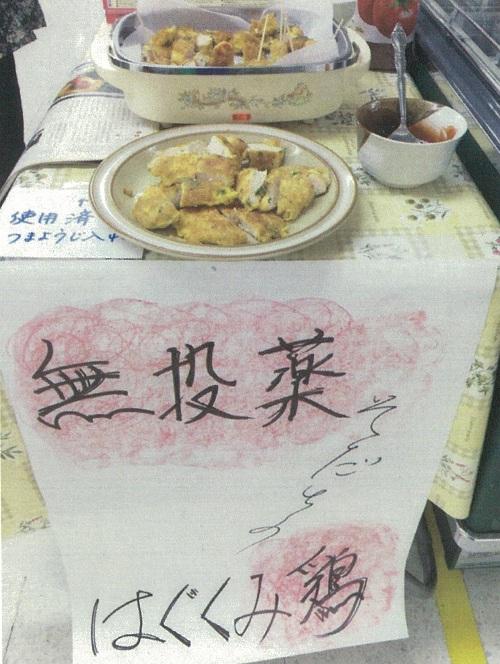 使用済
つまようじ入れ
無投薬
そだちの
はぐくみ鶏